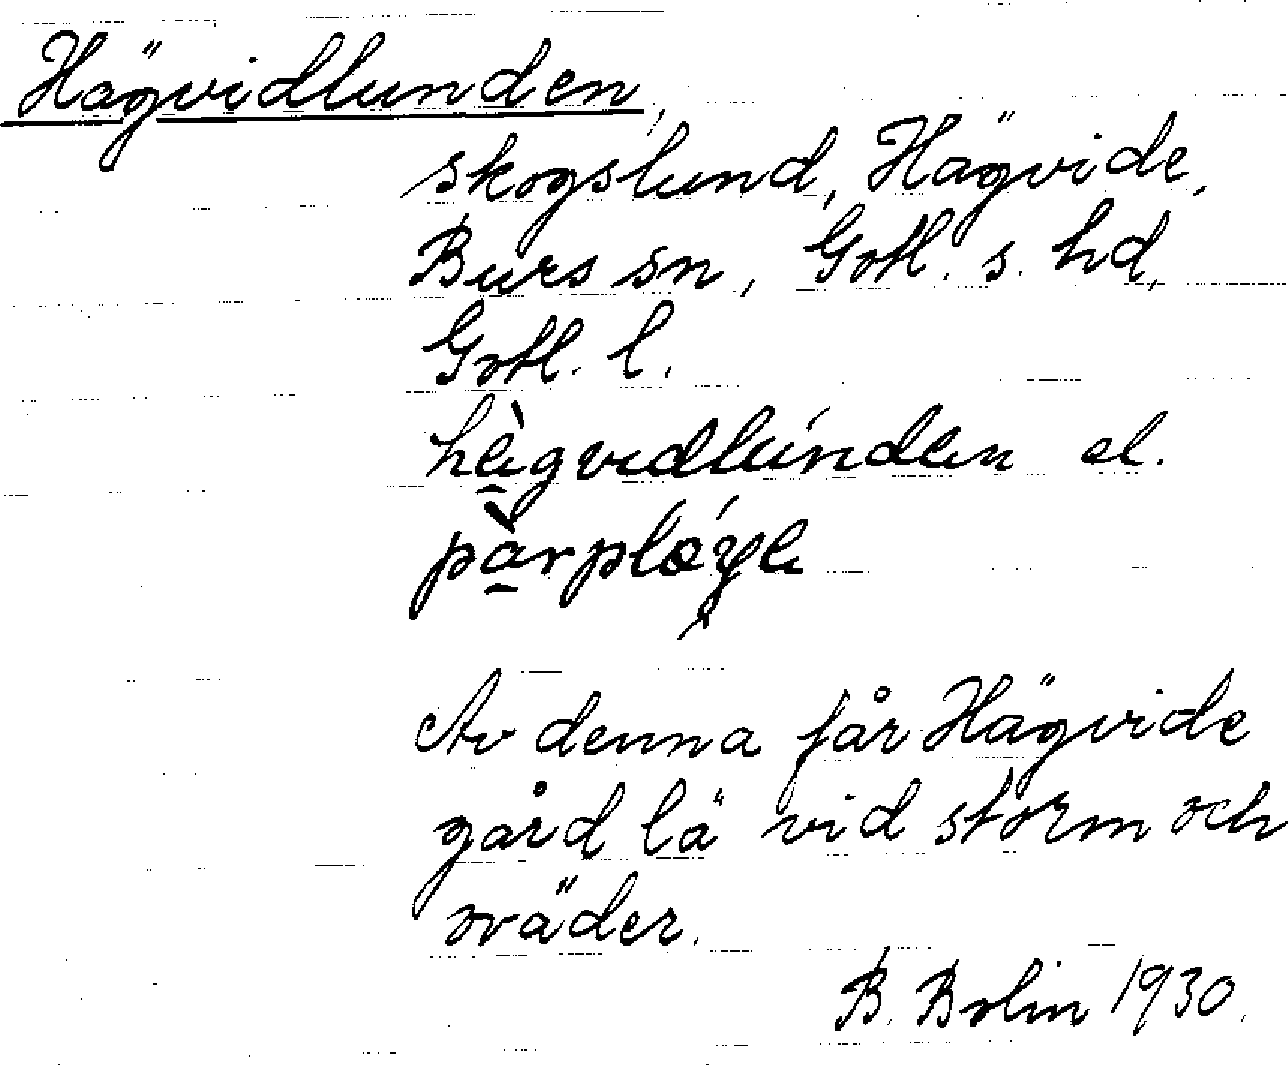 Hägvidlunden,
skogslund, Hägvide,
Burs sn, Gotl. s. hd,
Gotl. l.
hègvidlúnden el.
pàrpløyg
Av denna får Hägvide
gård lä vid storm och
oväder.
B. Bolin 1930.